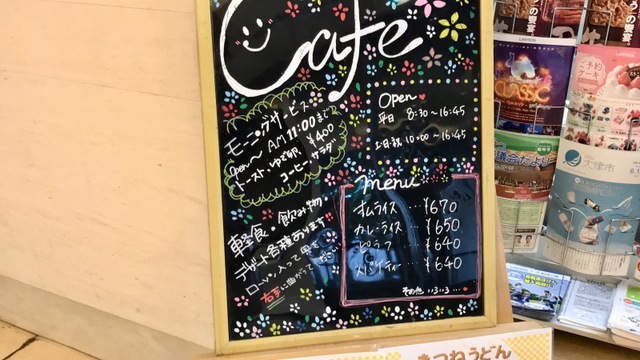 Cafe
モーニングサービス
open〜AM 11:00まで
トースト ゆで卵 ¥400
コーヒー サラダ
Open
平日 8:30〜16:45
土日祝 10:00〜16:45
軽食・飲み物・
デザート各種あります!!
ローソン入って奥を
右手に曲がって
menu
オムライス…¥670
カレーライス…¥650
ピラフ…¥640
スパゲティー…¥640
その他 いろいろ…
きつねうどん
LAWSON
CLASSIC
LAWSON
ご予約
ケーキ
大津市